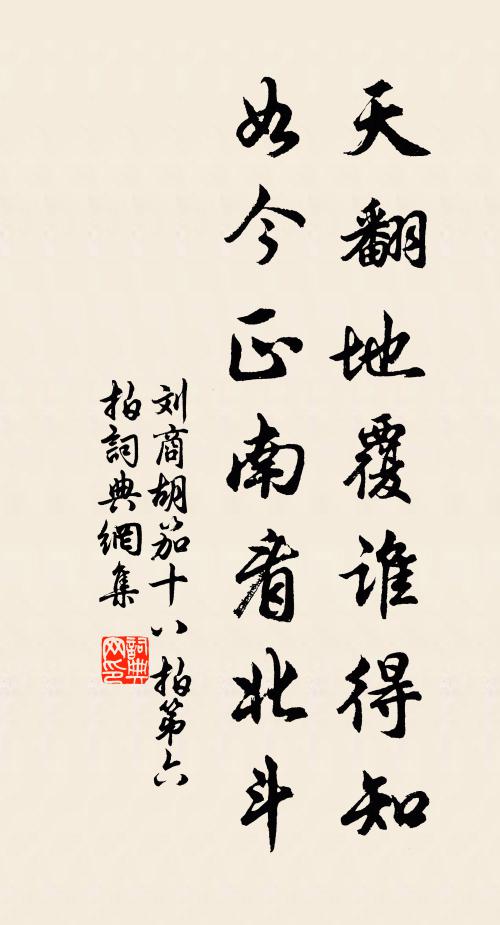 天翻地覆誰得知
如今正南看北斗
刘商胡笳十八拍第六
拍詞典網集
詞典网印